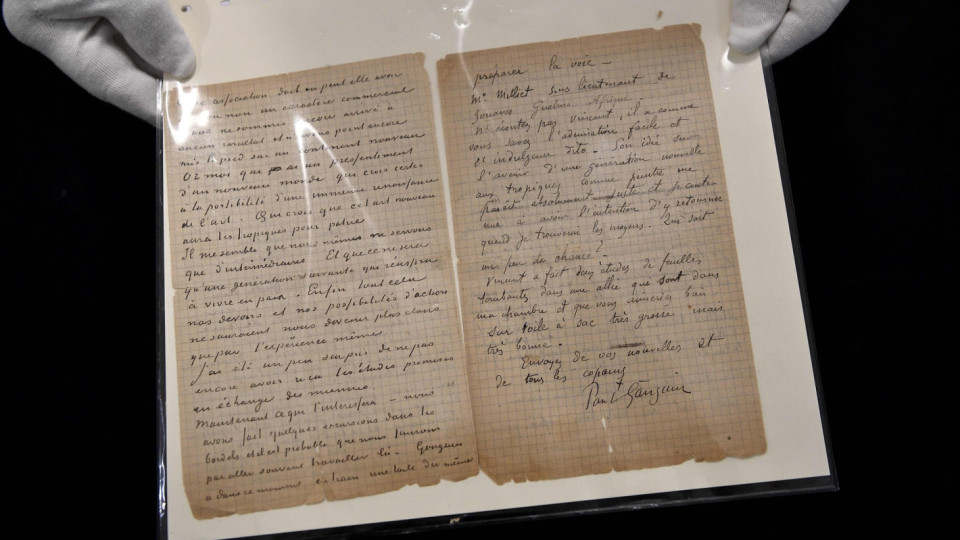 association dont on peut elle avoir
ou non un caractère commercial
nous ne sommes encore arrivé à
aucun resultat et n'avons point encore
mis le pied sur un continent nouveau
Or moi qui ai un pressentiment
d'un nouveau monde qui crois certes
à la possibilité d'une immense renaissance
de l'art. Qui crois que cet art nouveau
aura les tropiques pour patrie
Il me semble que nous mêmes ne servons
que d'intermédiaires. Et que ce ne sera
qu'une génération suivante qui réussira
à vivre en paix. Enfin tout cela
nos devoirs et nos possibilités d'action
ne sauraient nous devenir plus clairs
que par l'expérience même.
J'ai été un peu surpris de ne pas
encore avoir reçu les études promises
en échange des miennes
Maintenant ce qui t'interessera – nous
avons fait quelques excursions dans les
bordels et il est probable que nous finirons
par aller souvent travailler là. Gauguin
a dans ce moment en train une toile du même
préparer la voie –
Mr Milliet sous lieutenant de
Zouaves Guelma Afrique
N'écoutez pas Vincent, il a comme
vous savez l'admiration facile et
l'indulgence dito. Son idée sur
l'avenir d'une génération nouvelle
aux tropiques comme peintre me
parait absolument juste et je conti
nue à avoir l'intention d'y retourner
quand je trouverai les moyens. Qui sait
un peu de chance?
Vincent a fait deux études de feuilles
tombantes dans une allée qui sont dans
ma chambre et que vous aimeriez bien
Sur toile à sac très grosse mais
très bonne.
Envoyez de vos nouvelles et
de tous les copains
Paul Gauguin